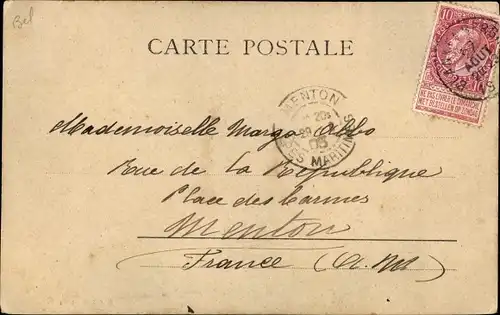 Bel
CARTE POSTALE
10
27
AOUT
MENTON
20
ES MARITIM
NE PAS LIVRER LE DIMANCHE
NIET BESTELLEN OP ZONDAG
Mademoiselle Marga Abbo
Rue de la République
Place des Carmes
Menton
France (A.M)